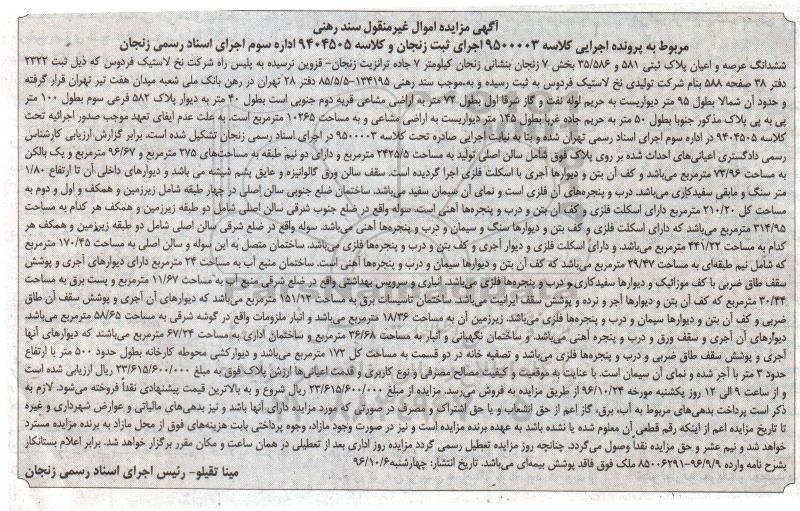 آگهی مزایده اموال غیرمنقول سند رهنی
مربوط به پرونده اجرایی کلاسه ۹۵۰۰۰۰۳ اجرای ثبت زنجان و کلاسه ۹۴۰۴۵۰۵ اداره سوم اجرای اسناد رسمی زنجان
ششدانگ عرصه و اعیان پلاک ثبتی ۵۸۱ و ۳۵/۵۸۶ بخش ۷ زنجان بنشانی زنجان کیلومتر ۷ جاده ترانزیت زنجان- قزوین نرسیده به پلیس راه شرکت نخ لاستیک فردوس که ذیل ثبت ۲۳۲۲
دفتر ۳۸ صفحه ۵۸۸ بنام شرکت تولیدی نخ لاستیک فردوس به ثبت رسیده و به‌موجب سند رهنی ۱۳۴۱۹۵-۸۵/۵/۵ دفتر ۲۸ تهران در رهن بانک ملی شعبه میدان هفت تیر تهران قرار گرفته
و حدود آن شمالا بطول ۹۵ متر دیواریست به حریم لوله نفت و گاز شرقا اول بطول ۷۳ متر به اراضی مشاعی قریه دوم جنوبی است بطول ۴۰ متر به دیوار پلاک ۵۸۲ فرعی سوم بطول ۱۰۰ متر
پی به پی پلاک مذکور جنوبا بطول ۵۰ متر به حریم جاده غربا بطول ۱۴۵ متر دیواریست به اراضی مشاعی و به مساحت ۱۰۲۶۵ مترمربع است. به علت عدم ایفای تعهد موجب صدور اجرائیه تحت
کلاسه ۹۴۰۴۵۰۵ در اداره سوم اجرای اسناد رسمی تهران شده و بنا به نیابت اجرایی صادره تحت کلاسه ۹۵۰۰۰۰۳ در اجرای اسناد رسمی زنجان تشکیل شده است. برابر گزارش ارزیابی کارشناس
رسمی دادگستری اعیانی‌های احداث شده بر روی پلاک فوق شامل سالن اصلی تولید به مساحت ۲۴۲۵/۵ مترمربع و دارای دو نیم طبقه به مساحت‌های ۲۷۵ مترمربع و ۹۶/۶۷ مترمربع و یک بالکن
به مساحت ۷۴/۹۶ مترمربع می‌باشد و کف آن بتن و دیوارها آجری با اسکلت فلزی اجرا گردیده است. سقف سالن ورق گالوانیزه و عایق پشم شیشه می باشد و دیوارهای داخلی آن تا ارتفاع ۱/۸۰
متر سنگ و مابقی سفیدکاری می‌باشد. درب و پنجره‌های آن فلزی است و نمای آن سیمان سفید می‌باشد. ساختمان ضلع جنوبی سالن اصلی در چهار طبقه شامل زیرزمین و همکف و اول و دوم به
مساحت کل ۲۱۰/۲۰ مترمربع دارای اسکلت فلزی و کف آن بتن و درب و پنجره‌ها آهنی است. سوله واقع در ضلع جنوب شرقی سالن اصلی شامل دو طبقه زیرزمین و همکف هر کدام به مساحت
۳۱۴/۹۵ مترمربع می‌باشد که دارای اسکلت فلزی و کف بتن و دیوارها سنگ و سیمان و درب و پنجره‌ها آهنی می‌باشد. سوله واقع در ضلع شرقی سالن اصلی شامل دو طبقه زیرزمین و همکف هر
کدام به مساحت ۴۴۱/۲۲ مترمربع می‌باشد. و دارای اسکلت فلزی و دیوار آجری و کف بتن و درب و پنجره‌ها فلزی می‌باشد. ساختمان متصل به این سوله و سالن اصلی به مساحت ۱۷۰/۴۵ مترمربع
که شامل نیم طبقه‌ای به مساحت ۲۹/۴۷ مترمربع می‌باشد که کف آن بتن و دیوارها سیمان و درب و پنجره‌ها آهنی است. ساختمان منبع آب به مساحت ۲۴ مترمربع دارای دیوارهای آجری و پوشش
سقف طاق ضربی با کف موزائیک و دیوارها سفیدکاری و درب و پنجره‌ها فلزی می‌باشد. انباری و سرویس بهداشتی واقع در ضلع شرقی منبع آب به مساحت ۱۱/۶۷ مترمربع و پست برق به مساحت
۳۰/۴۴ مترمربع که کف آن بتن و دیوارها آجر و نرده و پوشش سقف ایرانیت می‌باشد. ساختمان تاسیسات برق به مساحت ۱۵۱/۱۲ مترمربع می‌باشد که دیوارهای آن آجری و پوشش سقف آن طاق
ضربی و کف آن بتن و دیوارها سیمان و درب و پنجره‌ها فلزی می‌باشد. زیرزمین آن به مساحت ۱۸/۳۶ مترمربع می‌باشد و انبار ملزومات واقع در گوشه شرقی به مساحت ۵۸/۶۵ مترمربع می‌باشد.
دیوارهای آن آجری و سقف ورق و درب و پنجره آهنی می‌باشد. و ساختمان نگهبانی و انبار به مساحت ۳۶/۶۸ مترمربع و ساختمان اداری به مساحت ۶۷/۲۴ مترمربع می‌باشند که دیوارهای آنها
آجری و پوشش سقف طاق ضربی و درب و پنجره‌ها فلزی می‌باشد و تصفیه خانه در دو قسمت به مساحت کل ۱۷۲ مترمربع می‌باشد و دیوارکشی محوطه کارخانه بطول حدود ۵۰۰ متر با ارتفاع
حدود ۳ متر با آجر شده و نمای آن سیمان است. با عنایت به موقعیت و کیفیت مصالح مصرفی و نوع کاربری و قدمت اعیانی‌ها ارزش پلاک فوق به مبلغ ۲۳/۶۱۵/۶۰۰/۰۰۰ ریال ارزیابی شده است
و از ساعت ۹ الی ۱۲ روز یکشنبه مورخه ۹۶/۱۰/۲۴ از طریق مزایده به فروش می‌رسد. مزایده از مبلغ ۲۳/۶۱۵/۶۰۰/۰۰۰ ریال شروع و به بالاترین قیمت پیشنهادی نقداً فروخته می‌شود. لازم به
ذکر است پرداخت بدهی‌های مربوط به آب، برق، گاز اعم از حق انشعاب و یا حق اشتراک و مصرف در صورتی که مورد مزایده دارای آنها باشد و نیز بدهی‌های مالیاتی و عوارض شهرداری و غیره
تا تاریخ مزایده اعم از اینکه رقم قطعی آن معلوم شده یا نشده باشد به عهده برنده مزایده است و نیز در صورت وجود مازاد، وجوه پرداختی بابت هزینه‌های فوق از محل مازاد به برنده مزایده مسترد
خواهد شد و نیم عشر و حق مزایده نقداً وصول می‌گردد. چنانچه روز مزایده تعطیل رسمی گردد مزایده روز اداری بعد از تعطیلی در همان ساعت و مکان مقرر برگزار خواهد شد. برابر اعلام بستانکار
بشرح نامه وارده ۹۶/۹/۹-۸۵۰۰۶۲۹۱ ملک فوق فاقد پوشش بیمه‌ای می‌باشد. تاریخ انتشار: چهارشنبه ۹۶/۱۰/۶
مینا تقیلو- رئیس اجرای اسناد رسمی زنجان